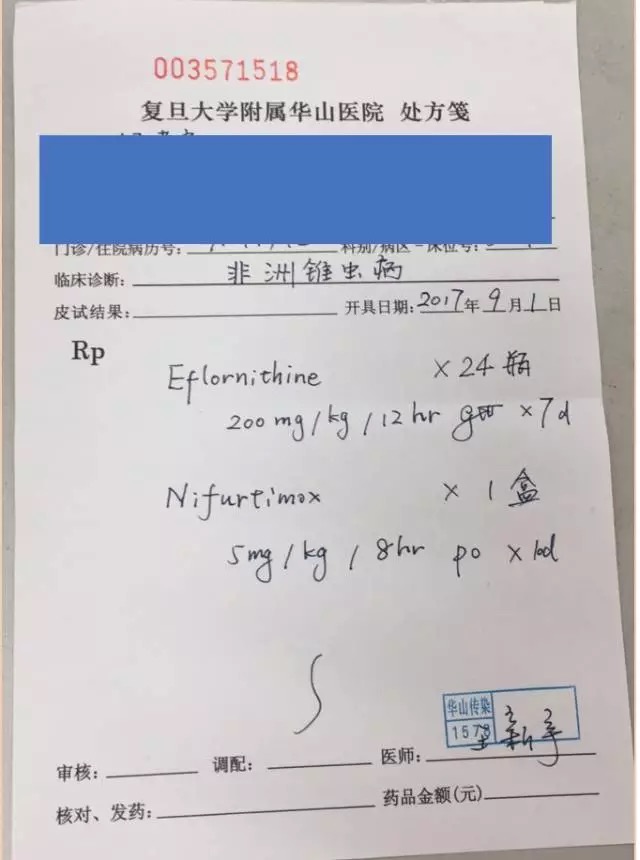 003571518
复旦大学附属华山医院 处方笺
门诊/住院病历号: 科别/病区-床位号:
临床诊断: 非洲锥虫病
皮试结果: 开具日期: 2017年9月1日
Rp
Eflornithine ×24瓶
200mg/kg/12hr gtt ×7d
Nifurtimox ×1盒
5mg/kg/8hr po ×10d
华山传染
1578
审核: 调配: 医师: 王新宇
核对、发药: 药品金额(元)